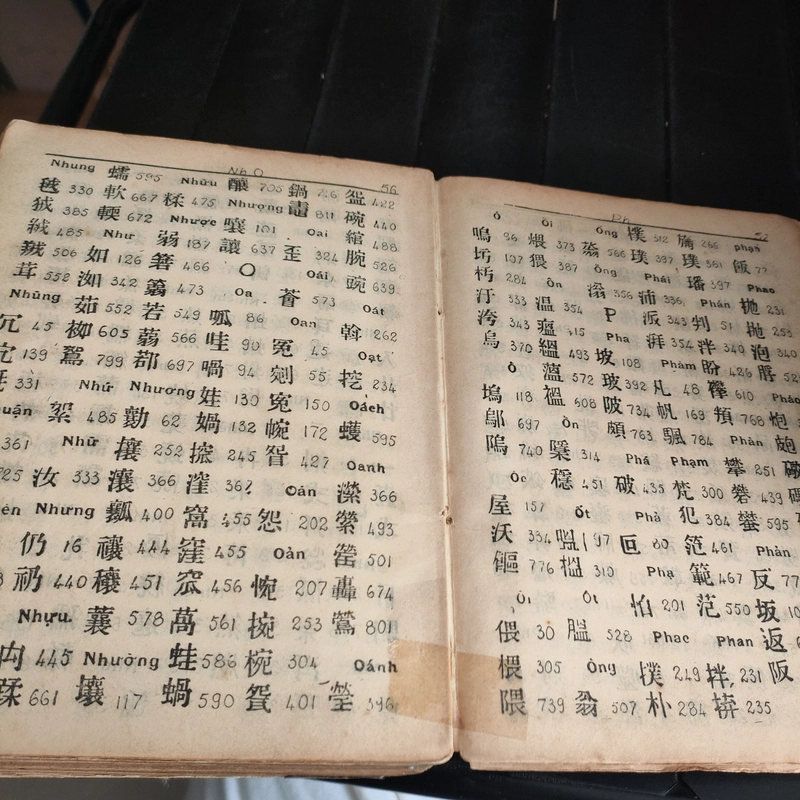 Nh O 56
Nhung
毧 330
狨 385
絨 485
羢 506
茸 552
Nhũng
冗 45
宂 139
331
361
肉 445
蹂 661
蠕 595
軟 667
輭 672
Như
如 126
洳 342
茹 552
袽 605
鴽 799
Nhứ
絮 485
Nhữ
汝 333
Nhưng
仍 16
礽 440
Nhựu.
Nhữu
糅 475
Nhược
弱 187
篛 466
473
若 549
蒻 566
鄀 697
Nhương
勷 62
攘 252
瀼 366
瓤 400
禳 444
穰 451
蘘 578
Nhưỡng
壤 117
釀 705
Nhượng
嚷 101
讓 637
O
Oa
呱 86
哇 90
喎 94
娃 130
媧 132
245
漥 362
窩 455
窪 455
窊 456
萵 561
蛙 586
蝸 590
鍋 716
811
Oai
歪 324
Oái
薈 573
Oan
冤 45
剜 55
寃 150
帵 172
眢 427
Oán
怨 202
Oản
惋 207
捥 253
椀 304
401
盌 422
碗 440
綰 488
腕 526
豌 639
Oát
斡 262
Oạt
挖 234
Oách
蠖 595
Oanh
瀠 366
縈 493
罃 501
轟 674
鶯 801
Oánh
瑩 396
Ph 57
Ô
嗚 96
圬 107
杇 284
汙 333
洿 343
烏 370
Ổ
塢 118
鄔 697
隖 740
Ốc
屋 157
沃 334
776
Ôi
偎 30
椳 305
隈 739
Ổi
煨 373
猥 387
Ôn
温 354
瘟 415
緼 493
薀 572
褞 608
Ổn
檃 314
穩 451
Ốt
嗢 97
榲 310
Ột
膃 528
Ông
翁 507
Ông
蓊 566
Ổng
滃 356
P
Pha
坡 108
玻 392
陂 734
頗 763
Phá
破 435
Phả
叵 80
Phạ
怕 201
Phac
撲 249
朴 284
樸 312
璞 397
Phái
沛 336
派 343
湃 354
Phàm
凡 48
帆 169
颿 784
Phạm
梵 300
犯 384
笵 461
範 467
范 550
Phan
拌 231
拚 235
旛 266
361
璠 397
Phán
判 51
泮 340
盼 426
襻 610
頖 768
Phàn
攀 251
礬 439
蠜 595
Phản
反 77
坂
返
阪
Phạn
飯 77
Phao
拋 231
拋 253
泡 340
脬
Pháo
炮